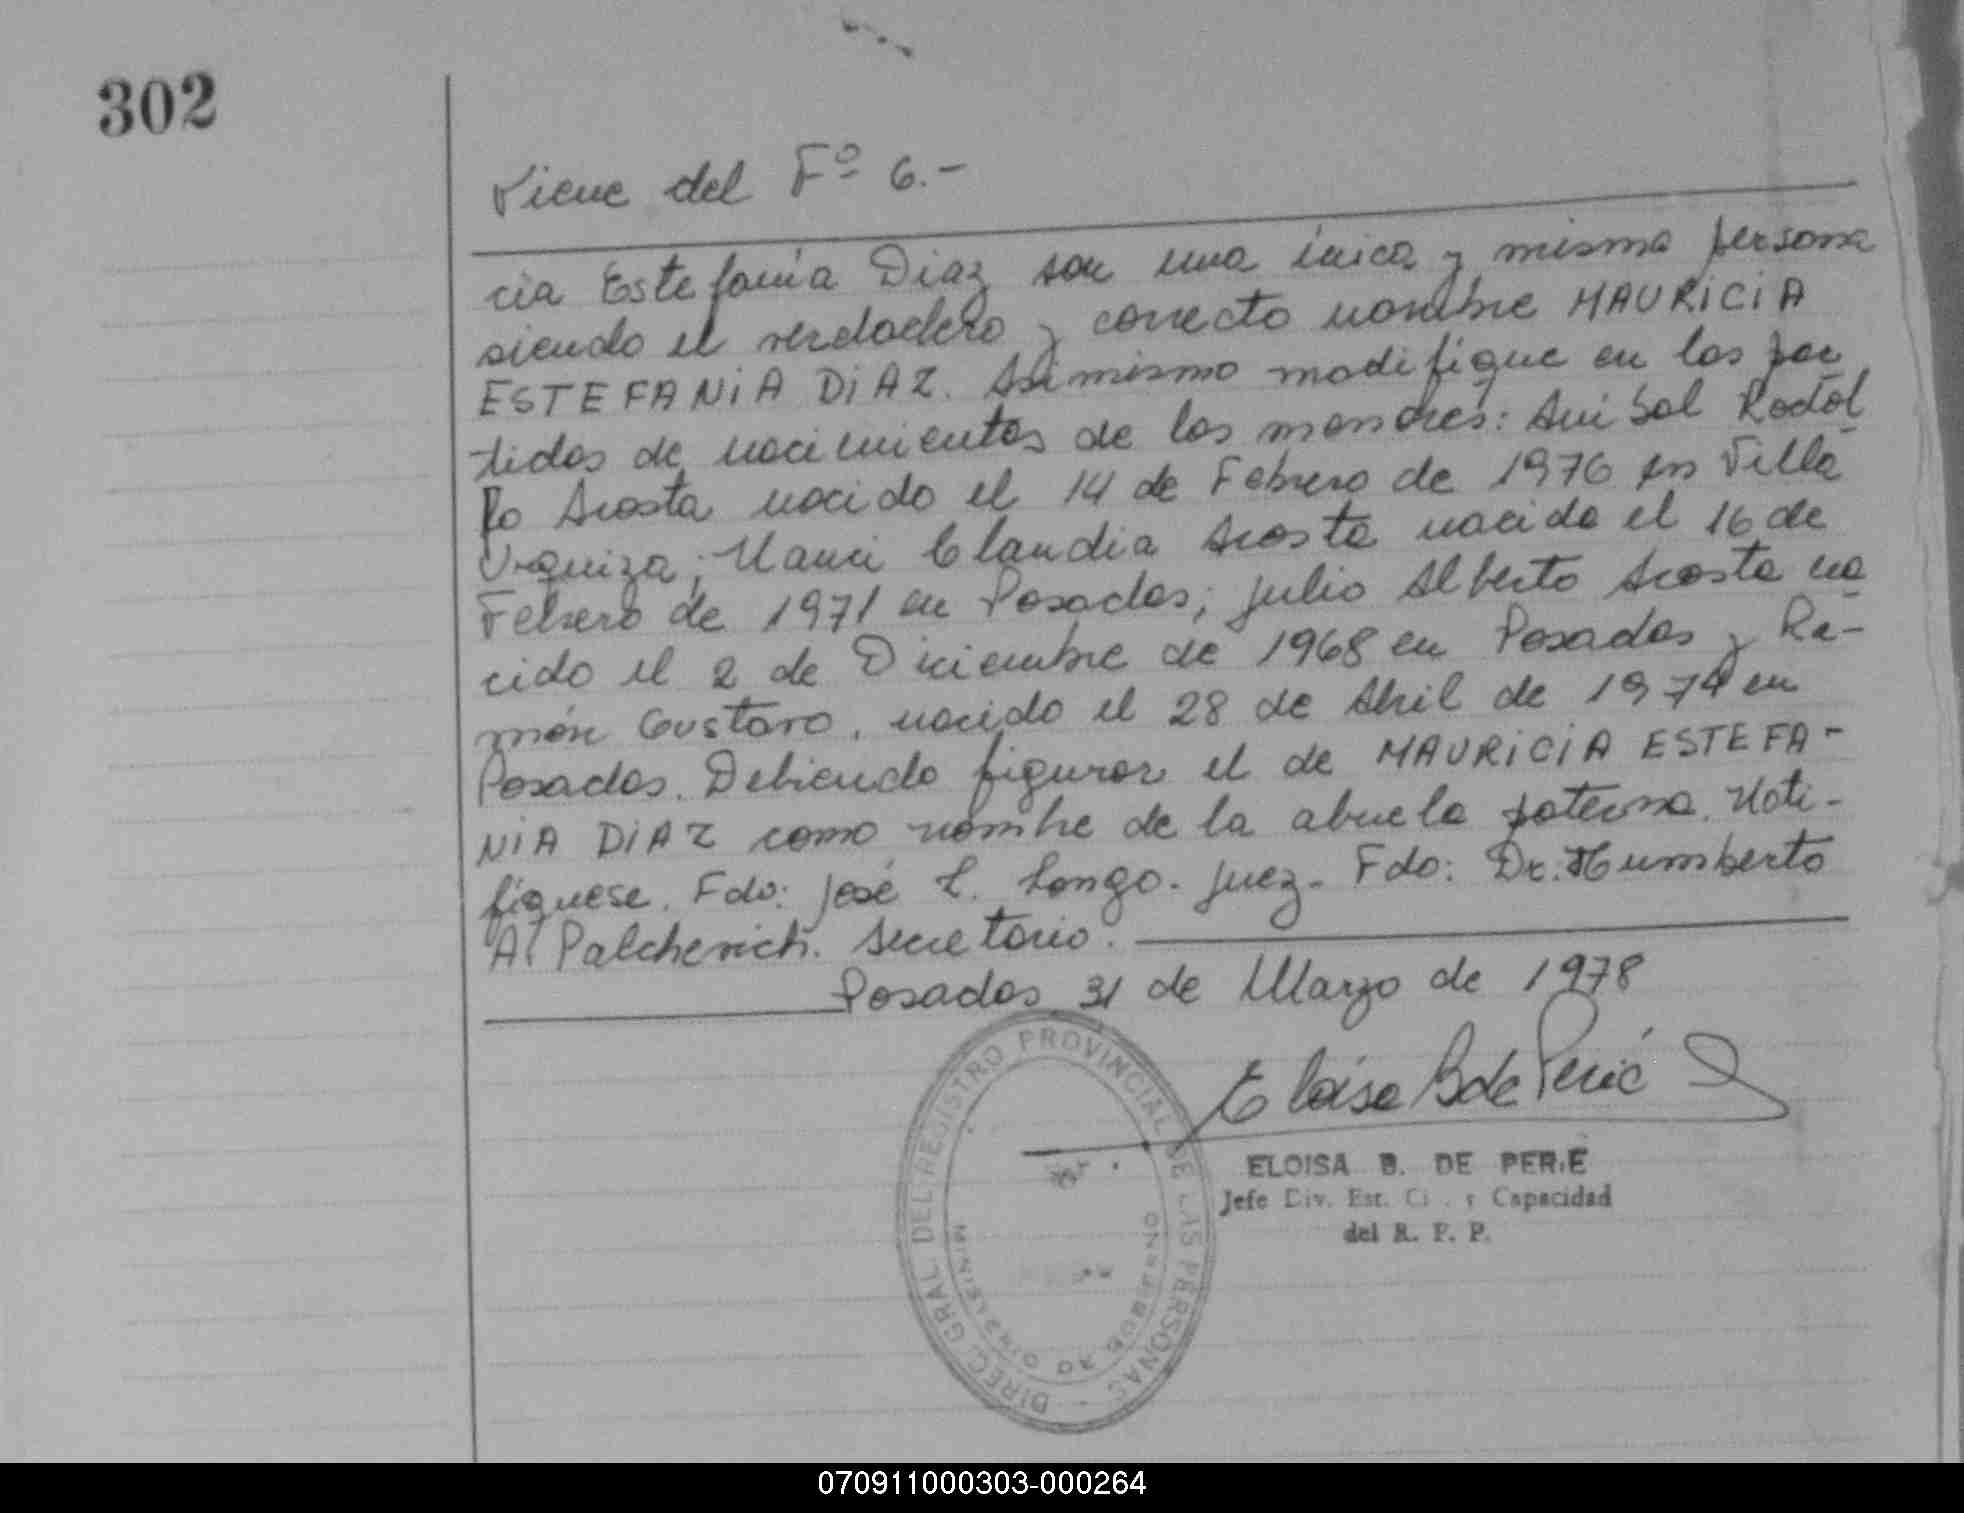 302
Viene del Fº 6.-
cia Estefanía Diaz son una única y misma persona
siendo el verdadero y correcto nombre MAURICIA
ESTEFANIA DIAZ. Asimismo modifique en las par
tidas de nacimientos de los menores: Anibal Rodol
fo Acosta nacido el 14 de Febrero de 1976 en Villa
Urquiza; Nanci Claudia Acosta nacida el 16 de
Febrero de 1971 en Posadas; Julio Alberto Acosta na
cido el 2 de Diciembre de 1968 en Posadas y Ra-
món Gustavo, nacido el 28 de Abril de 1974 en
Posadas. Debiendo figurar el de MAURICIA ESTEFA-
NIA DIAZ como nombre de la abuela paterna. Noti-
fíquese. Fdo: José L. Longo. Juez. Fdo: Dr. Humberto
A. Palcherich. Secretario.
Posadas 31 de Marzo de 1978
Eloisa B de Perié
ELOISA B. DE PERIE
Jefe Div. Est. Ci . y Capacidad
del R. P. P.
DIREC. GRAL. DEL REGISTRO PROVINCIAL DE LAS PERSONAS
MINISTERIO DE GOBIERNO
070911000303-000264